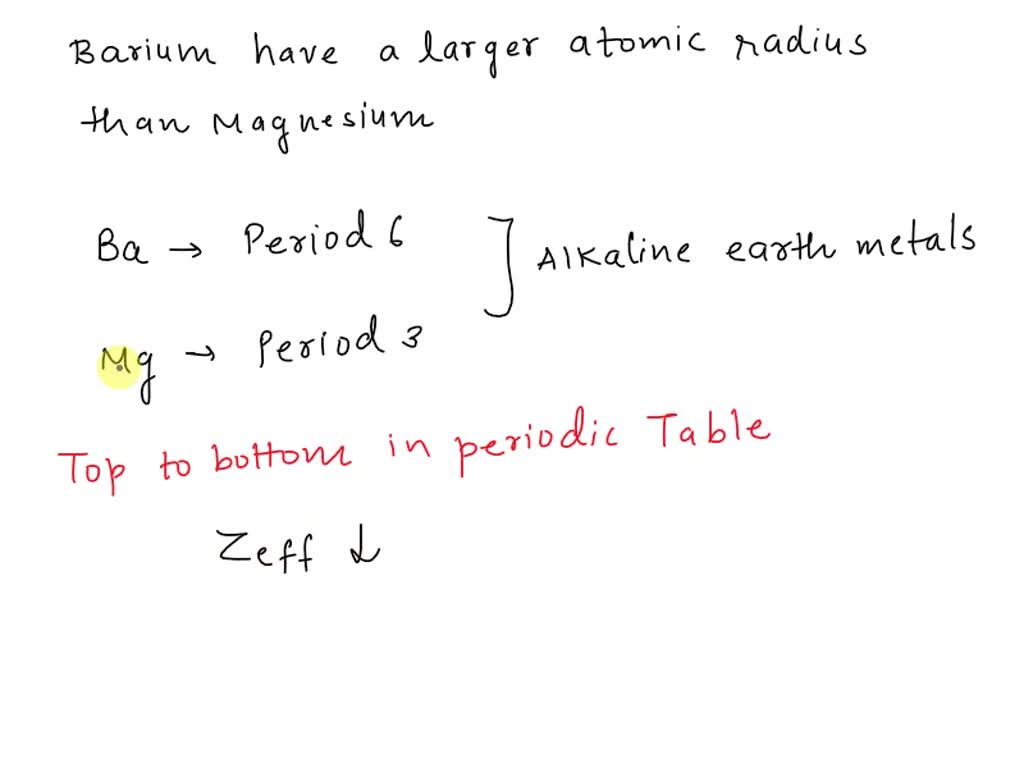 Barium have a larger atomic radius
than Magnesium
Ba → Period 6
] Alkaline earth metals
Mg → Period 3
Top to bottom in periodic Table
Zeff ↓